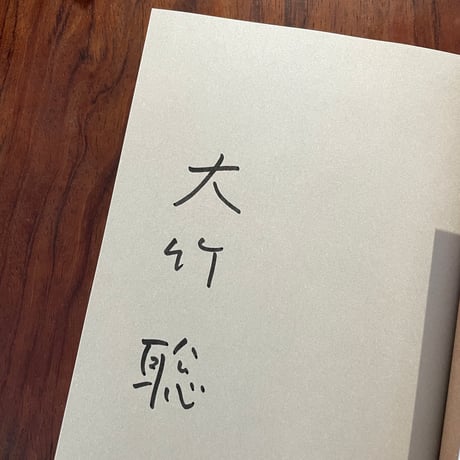 大竹
聡